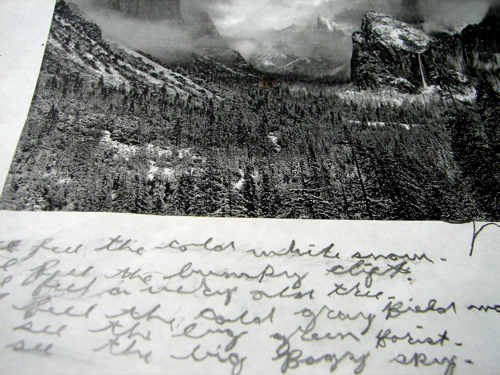 I feel the cold white snow.
I feel the bumpy clift.
I feel a very old tree.
I feel the cold gray field
I see the big green forist.
I see the big fogy sky.